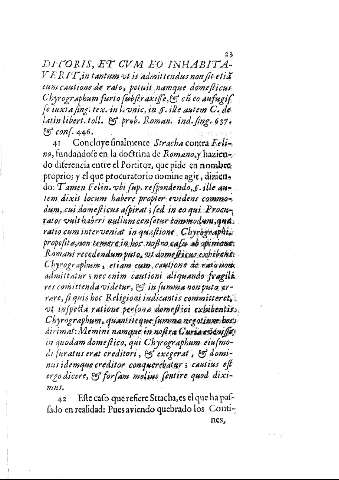 23
DITORIS, ET CVM EO INHABITA-
VERIT, in tantum ut is admittendus non sit etiā
cum cautione de rato, potuit namque domesticus
Chyrographum furto substraxisse, & cū eo aufugisse
iuxta sing. tex. in l. unic. in §. ille autem C. de
latin libert. toll. & prob. Roman. ind. sing. 637.
& cons. 446.
41 Concluye finalmente Stracha contra Feli-
no, fundandose en la doctrina de Romano, y hazien-
do diferencia entre el Portitor, que pide en nombre
proprio; y el que procuratorio nomine agit, dizien-
do: Tamen Felin. ubi sup. respondendo, §. ille au-
tem dixit locum habere propter evidens commo-
dum, cui domesticus aspirat; sed in eo qui Procu-
rator vult haberi nullum censetur commodum, quæ
ratio cum interveniat in quæstione Chyrographi
proposita, non temere in hoc nostro casu ab opinione
Romani recedendum puto, ut domesticus exhibens
Chyrographum, etiam cum cautione de rato non
admittatur: nec enim cautioni aliquando fragili
res comittenda videtur, & in summa non puto er-
rare, si quis hoc Religioni iudicantis committeret,
ut inspecta ratione personæ domestici exhibentis
Chyrographum, quantitate summa negotium hoc
dirimat: Memini namque in nostra Curia evenisse
in quodam domestico, qui Chyrographum eiusmo-
di furatus erat creditori, & exegerat, & domi-
nus idemque creditor conquerebatur; cautius est
ergo dicere, & forsam melius sentire quod dixi-
mus.
42 Este caso que refiere Stracha, es el que ha pas-
sado en realidad: Pues aviendo quebrado los Conti-
nes,